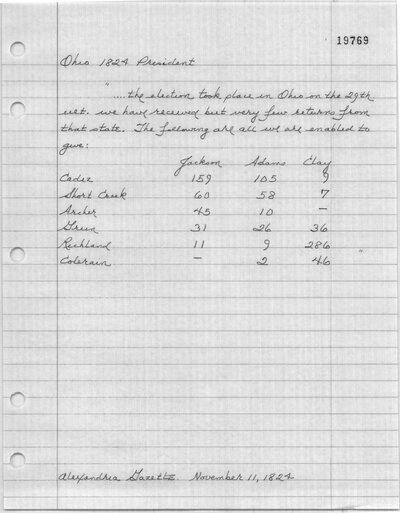 19769
Ohio 1824 President
"....the election took place in Ohio on the 29th
ult. we have received but very few returns from
that state. The following are all we are enabled to
give:
Jackson Adams Clay
Cadiz 159 105 9
Short Creek 60 58 7
Archer 45 10 —
Green 31 26 36
Richland 11 9 286
Colerain — 2 46 "
Alexandria Gazette. November 11, 1824